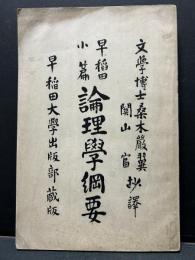 文學博士桑木嚴翼
關山富 抄譯
早稻田
小篇
論理學綱要
早稻田大學出版部藏版